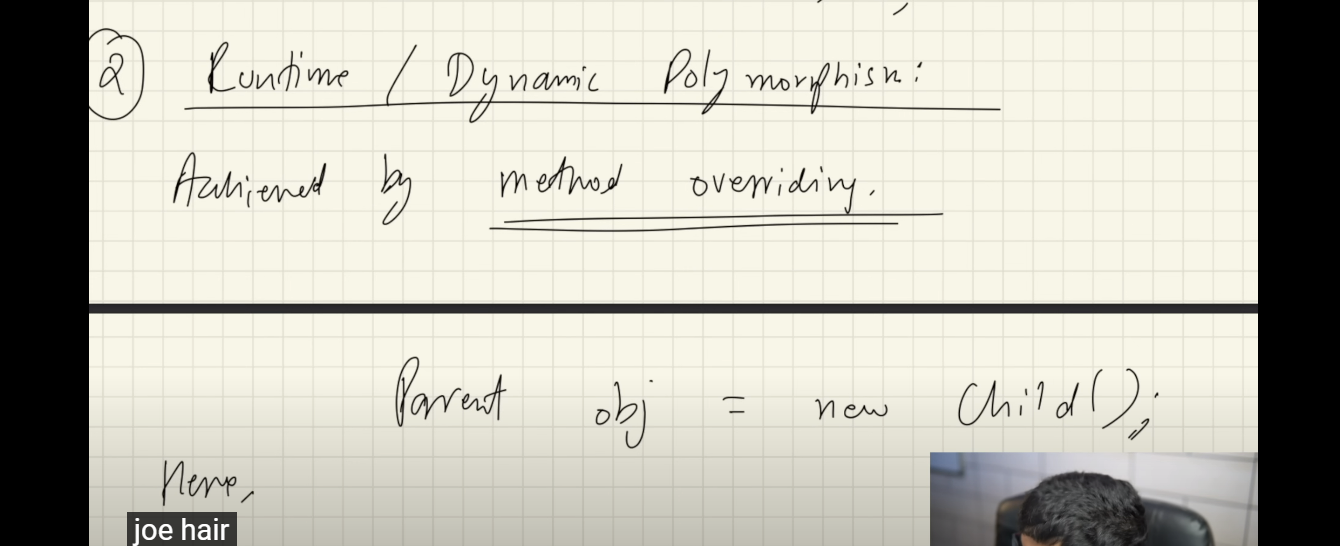 2 Runtime / Dynamic Polymorphism:
Achieved by method overriding.
Parent obj = new Child();
Here,
joe hair